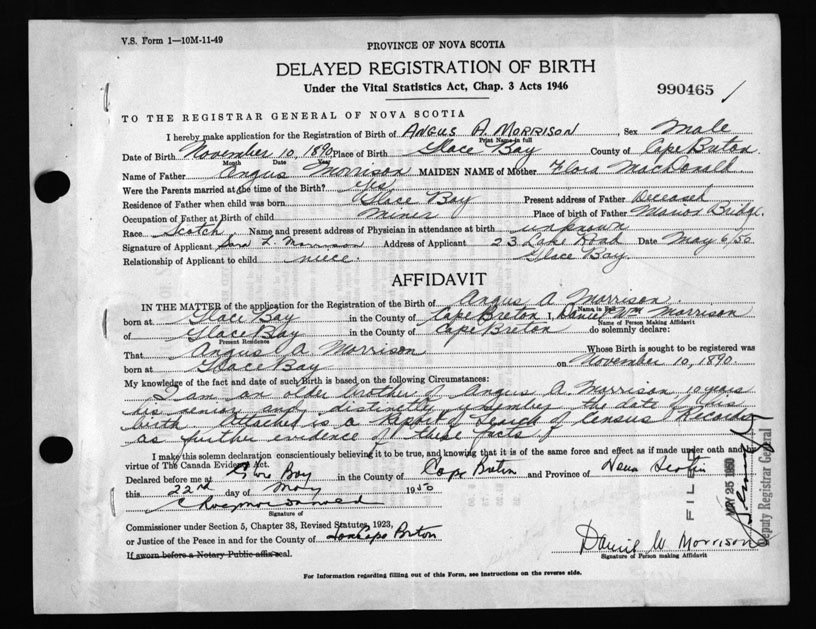 V.S. Form 1—10M-11-49
PROVINCE OF NOVA SCOTIA
DELAYED REGISTRATION OF BIRTH
Under the Vital Statistics Act, Chap. 3 Acts 1946
990465
TO THE REGISTRAR GENERAL OF NOVA SCOTIA
I hereby make application for the Registration of Birth of ANGUS A. MORRISON, Sex Male
Print Name in full
Date of Birth November 10, 1890 Place of Birth Glace Bay County of Cape Breton
Month Date Year
Name of Father Angus Morrison MAIDEN NAME of Mother Flora MacDonald
Were the Parents married at the time of the Birth? Yes
Residence of Father when child was born Glace Bay Present address of Father Deceased
Occupation of Father at Birth of child miner Place of birth of Father Bridge.
Race Scotch Name and present address of Physician in attendance at birth unknown
Signature of Applicant Sara L. Morrison Address of Applicant 23 Lake Road Date May 6/50
Relationship of Applicant to child niece. Glace Bay.
AFFIDAVIT
IN THE MATTER of the application for the Registration of the Birth of Angus A. Morrison.
Name in Full
born at Glace Bay in the County of Cape Breton I, Daniel Wm Morrison
Name of Person Making Affidavit
of Glace Bay in the County of Cape Breton do solemnly declare:
Present Residence
That Angus A Morrison Whose Birth is sought to be registered was
born at Glace Bay on November 10, 1890.
My knowledge of the fact and date of such Birth is based on the following Circumstances:
I am an older brother of Angus A. Morrison 10 years
his senior and distinctly remember the date of his
birth Attached is a Report of Search of Census Records
as further evidence of these facts
I make this solemn declaration conscientiously believing it to be true, and knowing that it is of the same force and effect as if made under oath and by
virtue of The Canada Evidence Act.
Declared before me at Glace Bay in the County of Cape Breton and Province of Nova Scotia
this 22nd day of May 1950
Signature of
Commissioner under Section 5, Chapter 38, Revised Statutes, 1923,
or Justice of the Peace in and for the County of Cape Breton
If sworn before a Notary Public affix seal.
Daniel W Morrison
Signature of Person making Affidavit
FILED
MAY 25 1950
Deputy Registrar General
For Information regarding filling out of this Form, see instructions on the reverse side.